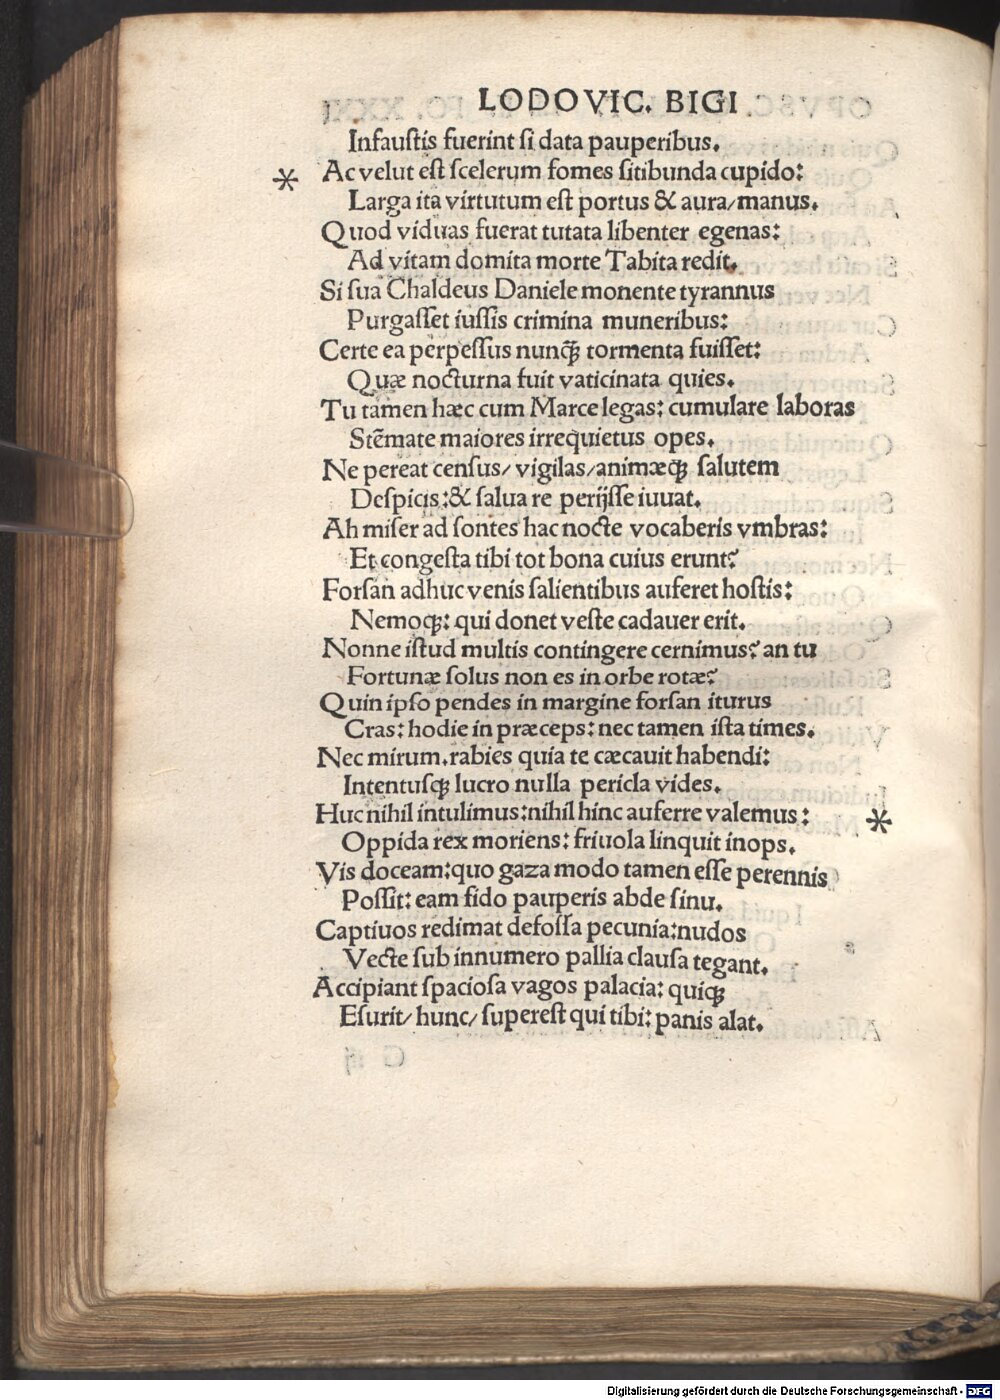 LODOVIC. BIGI
Infauſtis fuerint ſi data pauperibus.
* Ac velut eſt ſcelerum fomes ſitibunda cupido:
Larga ita virtutum eſt portus & aura/manus.
Quod viduas fuerat tutata libenter egenas:
Ad vitam domita morte Tabita redit.
Si ſua Chaldeus Daniele monente tyrannus
Purgaſſet iuſſis crimina muneribus:
Certe ea perpeſſus nunꝗ̃ tormenta fuiſſet:
Quæ nocturna fuit vaticinata quies.
Tu tamen hæc cum Marce legas: cumulare laboras
Stẽmate maiores irrequietus opes.
Ne pereat cenſus/ vigilas/animæꝗ; ſalutem
Deſpicis:& ſalua re perijſſe iuuat.
Ah miſer ad ſontes hac nocte vocaberis vmbras:
Et congeſta tibi tot bona cuius erunt?
Forſan adhuc venis ſalientibus auferet hoſtis:
Nemoꝗ;: qui donet veſte cadauer erit.
Nonne iſtud multis contingere cernimus? an tu
Fortunæ ſolus non es in orbe rotæ?
Quin ipſo pendes in margine forſan iturus
Cras: hodie in præceps: nec tamen iſta times.
Nec mirum.rabies quia te cæcauit habendi:
Intentuſꝗ; lucro nulla pericla vides.
Huc nihil intulimus:nihil hinc auferre valemus: *
Oppida rex moriens: friuola linquit inops.
Vis doceam:quo gaza modo tamen eſſe perennis
Poſſit: eam fido pauperis abde ſinu.
Captiuos redimat defoſſa pecunia:nudos
Vecte ſub innumero pallia clauſa tegant.
Accipiant ſpacioſa vagos palacia: quiꝗ;
Eſurit/ hunc/ ſupereſt qui tibi: panis alat.
Digitalisierung gefördert durch die Deutsche Forschungsgemeinschaft - DFG